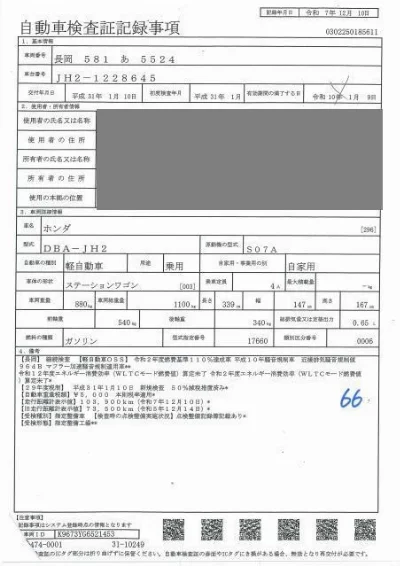 記録年月日 令和 7年 12月 10日
自動車検査証記録事項
0302250185611
1．基本情報
車両番号 長岡 581 あ 5524
車台番号 JH2-1228645
交付年月日 平成 31年 1月 10日 初度検査年月 平成 31年 1月 有効期間の満了する日 令和 10年 1月 9日
2．使用者・所有者情報
使用者の氏名又は名称
使用者の住所
所有者の氏名又は名称
所有者の住所
使用の本拠の位置
3．車両詳細情報
車名 ホンダ [296]
型式 DBA-JH2 原動機の型式 S07A
自動車の種別 軽自動車 用途 乗用 自家用・事業用の別 自家用
車体の形状 ステーションワゴン [003] 乗車定員 4人 最大積載量 -kg
車両重量 880kg 車両総重量 1100kg 長さ 339cm 幅 147cm 高さ 167cm
前軸重 540kg 後軸重 340kg 総排気量又は定格出力 0.65 L
燃料の種類 ガソリン 型式指定番号 17660 類別区分番号 0006
4．備考
[長岡] 継続検査 [軽自動車OSS] 令和2年度燃費基準110%達成車 平成10年騒音規制車 近接排気騒音規制値
96dB マフラー加速騒音規制適用車**
令和12年度エネルギー消費効率（WLTCモード燃費値）算定未了 令和2年度エネルギー消費効率（WLTCモード燃費値
）算定未了*
[29年度税制] 平成31年1月10日 新規検査 50%減税措置済み*
[自動車重量税額] ¥5,000 本則税率適用*
[走行距離計表示値] 103,900km（令和7年12月10日）*
[旧走行距離計表示値] 73,500km（令和5年12月14日）*
[受検種別] 指定整備車 [検査時の点検整備実施状況] 点検整備記録簿記載あり*
[受検形態] 指定整備工場**
66
[注意事項]
車検証記録事項はシステム登録時点の情報となります
ID K9673YG6521453
474-0001 31-10249